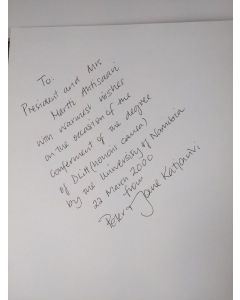 To:
President and Mrs
Martti Ahtisaari
with warmest wishes
on the occasion of the
conferment of the degree
of DLitt (honoris causa)
by the University of Namibia
22 March 2000
from
Peter & Jane Katjavivi.